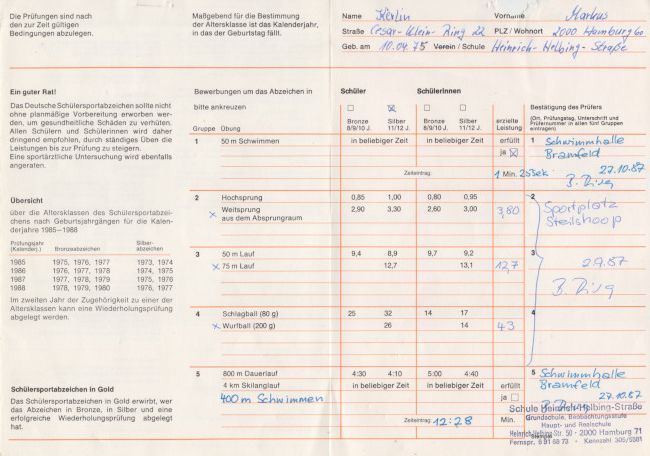 Die Prüfungen sind nach
den zur Zeit gültigen
Bedingungen abzulegen.
Maßgebend für die Bestimmung
der Altersklasse ist das Kalenderjahr,
in das der Geburtstag fällt.
Name Kerlin Vorname Markus
Straße Cesar-Klein-Ring 22 PLZ / Wohnort 2000 Hamburg 60
Geb. am 10.04.75 Verein / Schule Heinrich-Helbing-Straße
Ein guter Rat!
Das Deutsche Schülersportabzeichen sollte nicht
ohne planmäßige Vorbereitung erworben wer-
den, um gesundheitliche Schäden zu verhüten.
Allen Schülern und Schülerinnen wird daher
dringend empfohlen, durch ständiges Üben die
Leistungen bis zur Prüfung zu steigern.
Eine sportärztliche Untersuchung wird ebenfalls
angeraten.
Übersicht
über die Altersklassen des Schülersportabzei-
chens nach Geburtsjahrgängen für die Kalen-
derjahre 1985–1988
Prüfungsjahr Bronzeabzeichen Silber-
(Kalenderj.) abzeichen
1985 1975, 1976, 1977 1973, 1974
1986 1976, 1977, 1978 1974, 1975
1987 1977, 1978, 1979 1975, 1976
1988 1978, 1979, 1980 1976, 1977
Im zweiten Jahr der Zugehörigkeit zu einer der
Altersklassen kann eine Wiederholungsprüfung
abgelegt werden.
Schülersportabzeichen in Gold
Das Schülersportabzeichen in Gold erwirbt, wer
das Abzeichen in Bronze, in Silber und eine
erfolgreiche Wiederholungsprüfung abgelegt
hat.
Bewerbungen um das Abzeichen in Schüler Schülerinnen
bitte ankreuzen
Bronze Silber Bronze Silber erzielte
Gruppe Übung 8/9/10 J. 11/12 J. 8/9/10 J. 11/12 J. Leistung
Bestätigung des Prüfers
(Ort, Prüfungstag, Unterschrift und
Prüfernummer in allen fünf Gruppen
eintragen)
1 50 m Schwimmen in beliebiger Zeit in beliebiger Zeit erfüllt
ja x
Zeiteintrag: 1 Min. 25 Sek
1 Schwimmhalle
Bramfeld
27.10.87
2 Hochsprung 0,85 1,00 0,80 0,95
x Weitsprung 2,90 3,30 2,60 3,00 3,80
aus dem Absprungraum
2 Sportplatz
Steilshoop
3 50 m Lauf 9,4 8,9 9,7 9,2
x 75 m Lauf 12,7 13,1 12,7
3
2.9.87
4 Schlagball (80 g) 25 32 14 17
x Wurfball (200 g) 26 14 43
4
5 800 m Dauerlauf 4:30 4:10 5:00 4:40 erfüllt
4 km Skilanglauf in beliebiger Zeit in beliebiger Zeit ja
400 m Schwimmen
Zeiteintrag: 12:28 Min.
5 Schwimmhalle
Bramfeld
27.10.87
Schule Heinrich-Helbing-Straße
Grundschule, Beobachtungsstufe
Haupt- und Realschule
Heinrich-Helbing-Str. 50 · 2000 Hamburg 71